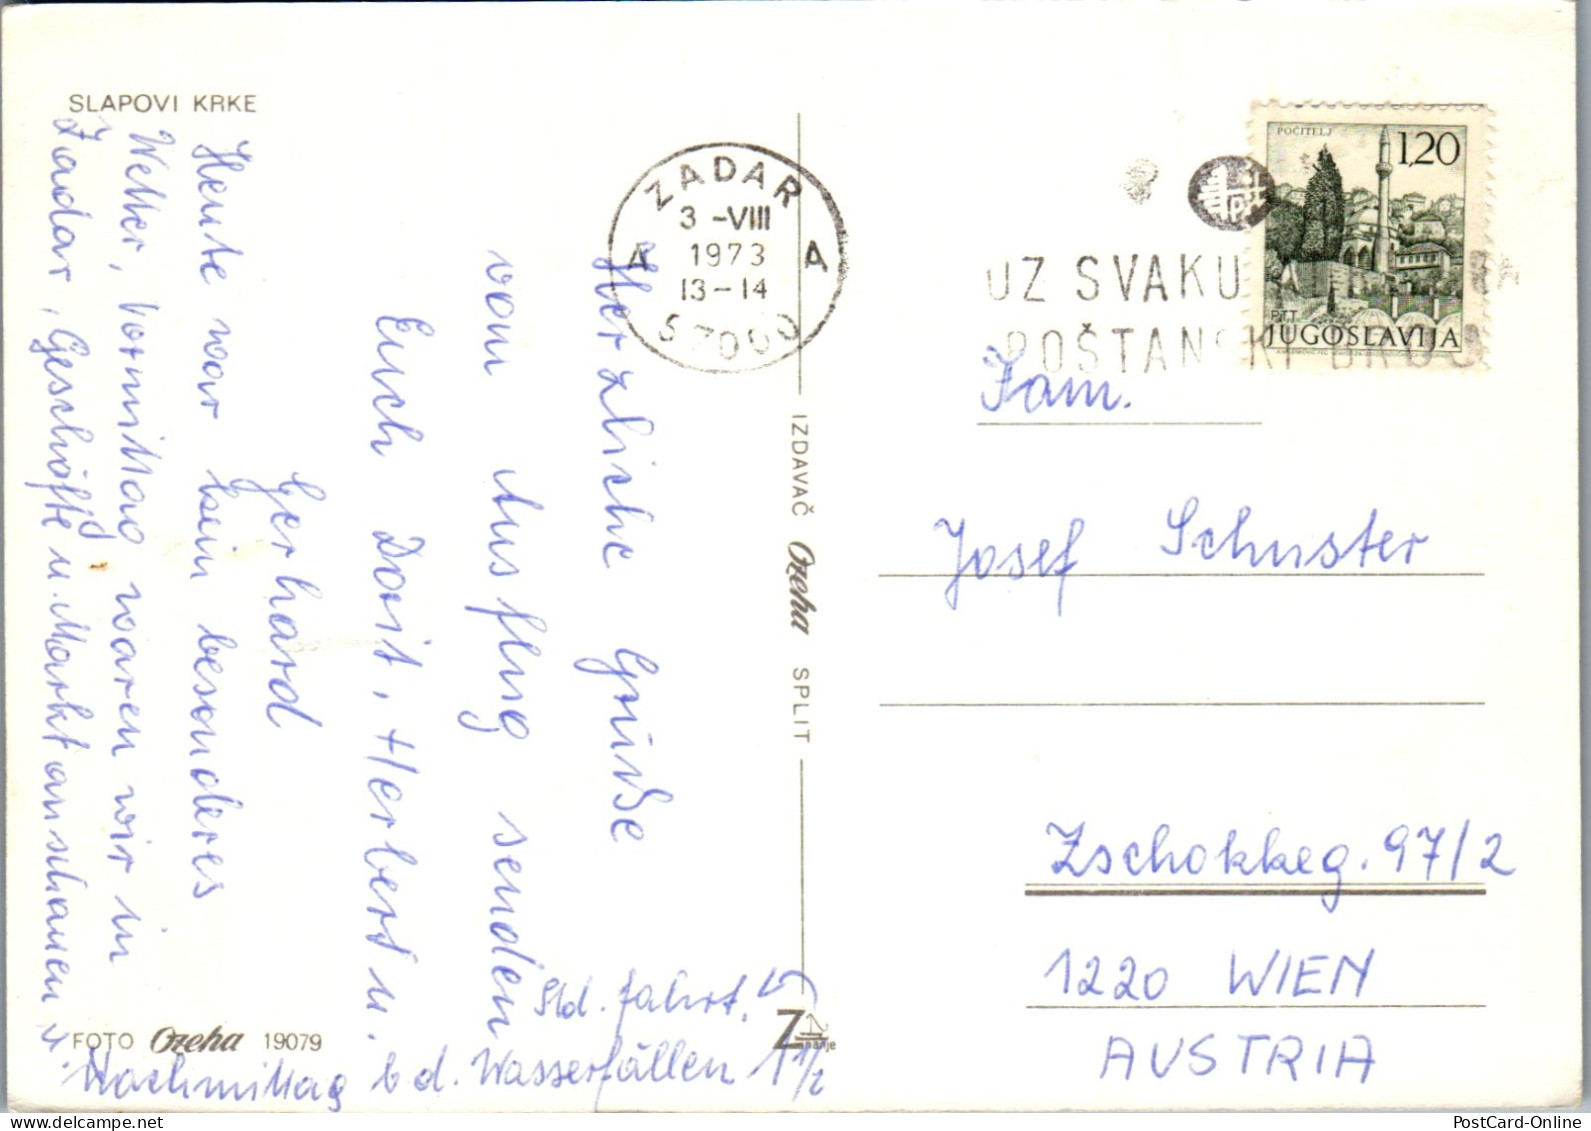 SLAPOVI KRKE
Herzliche Grüße
vom Ausflug senden
Euch Dorit, Herbert u.
Gerhard
Heute war kein besonderes
Wetter, Vormittag waren wir in
Zadar, Geschäfte u. Markt anschauen
u. Nachmittag b d. Wasserfällen 1 1/2
Std. Fahrt.
FOTO Ozeha 19079
ZADAR
3 -VIII
1973
13-14
A A
57000
IZDAVAČ Ozeha SPLIT
UZ SVAKU
POŠTANSKI BROJ
POČITELJ
1,20
PTT
JUGOSLAVIJA
Fam.
Josef Schuster
Zschokkeg. 97/2
1220 WIEN
AUSTRIA
PostCard-Online